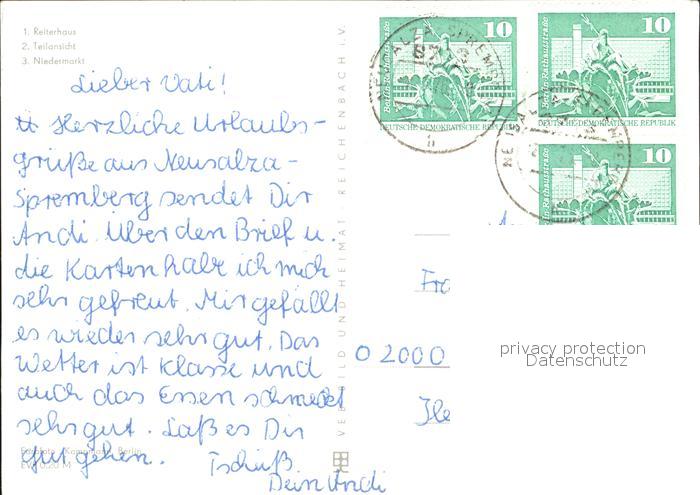 1. Reiterhaus
2. Teilansicht
3. Niedermarkt
Lieber Vati!
Herzliche Urlaubs-
grüße aus Neusalza-
Spremberg sendet Dir
Andi. Über den Brief u.
die Karten habe ich mich
sehr gefreut. Mir gefällt
es wieder sehr gut. Das
Wetter ist klasse und
auch das Essen schmeckt
sehr gut. Laß es Dir
gut gehen. Tschüß
Dein Andi
EVP 0,20 M
VEB BILD UND HEIMAT REICHENBACH i. V.
10
Berlin Rathausstraße
DEUTSCHE DEMOKRATISCHE REPUBLIK
10
Berlin Rathausstraße
DEUTSCHE DEMOKRATISCHE REPUBLIK
10
Berlin Rathausstraße
Fra
O 2000
privacy protection
Datenschutz